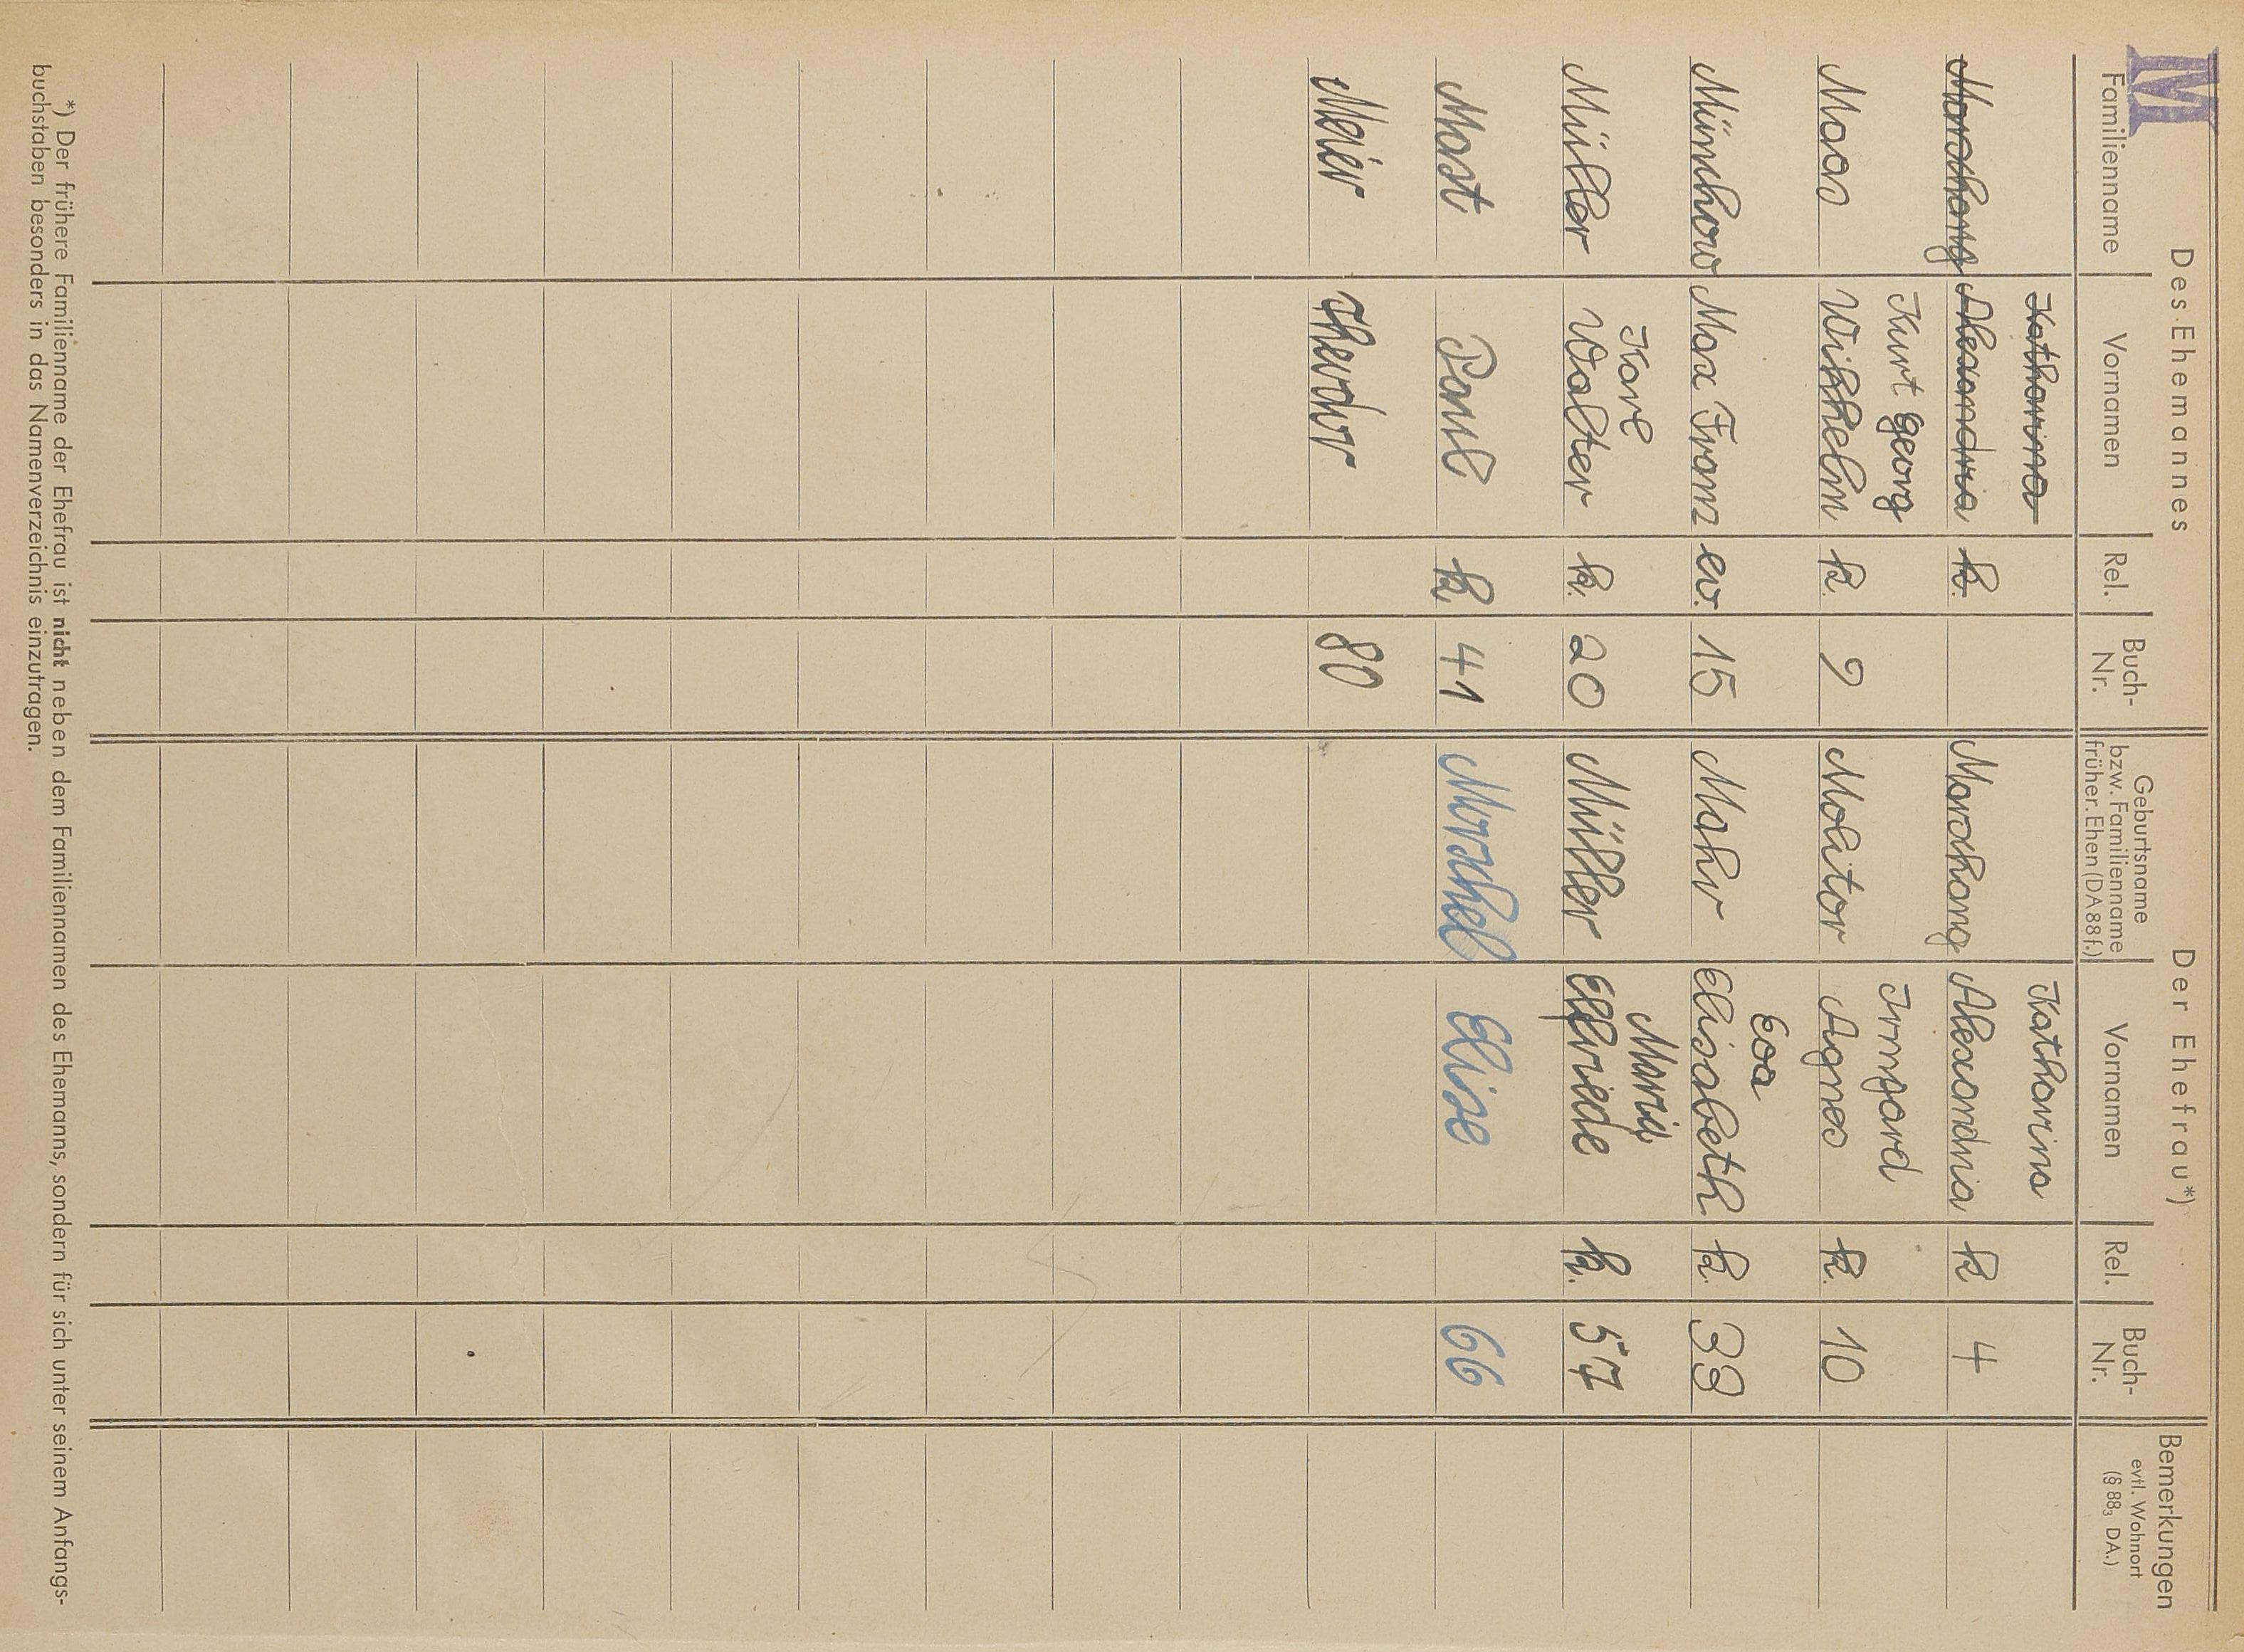 M
Des Ehemannes Der Ehefrau*) Bemerkungen
evtl. Wohnort
(§ 88₃ DA.)
Familienname Vornamen Rel. Buch-
Nr. Geburtsname
bzw. Familienname
früher. Ehen (DA 88 f.) Vornamen Rel. Buch-
Nr.
Katharina Katharina
Marohang Alexandria k. Marohang Alexandria k 4
Kurt Georg Irmgard
Maas Wilhelm k. 9 Molitor Agnes k. 10
Eva
Münchow Max Franz ev. 15 Mahr Elisabeth k. 33
Karl Maria
Müller Walter k. 20 Müller Elfriede k. 57
Mast Paul k 41 Elise 66
Meier Theodor 80
*) Der frühere Familienname der Ehefrau ist nicht neben dem Familiennamen des Ehemanns, sondern für sich unter seinem Anfangs-
buchstaben besonders in das Namenverzeichnis einzutragen.